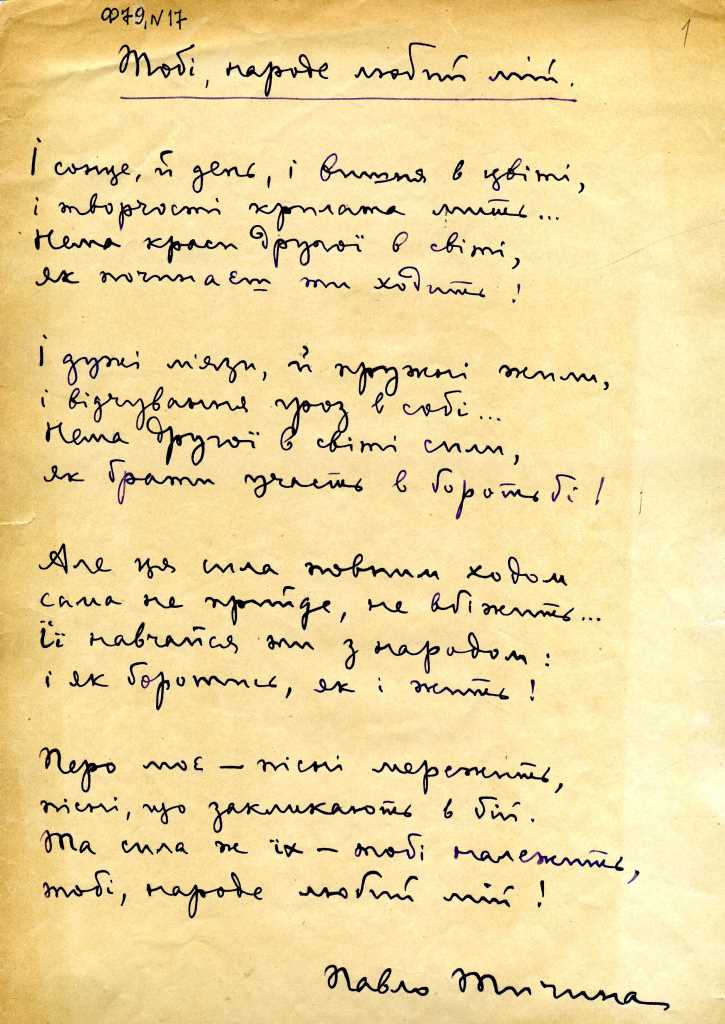 Ф79, N17
1
Тобі, народе любий мій.
І сонце, й день, і вишня в цвіті,
і творчості крилата мить...
Нема краси другої в світі,
як починаєш ти ходить!
І дужі м'язи, й пружні жили,
і відчування гроз в собі...
Нема другої в світі сили,
як брати участь в боротьбі!
Але ця сила повним ходом
сама не прийде, не вбіжить...
Її навчайся ти з народом:
і як боротись, як і жить!
Перо моє — пісні мережить,
пісні, що закликають в бій.
Та сила ж їх — тобі належить,
тобі, народе любий мій!
Павло Тичина